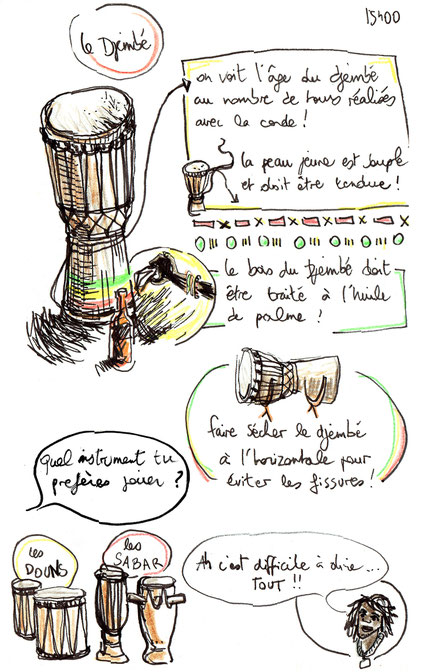 15h00
Le Djembé
on voit l'âge du djembé
au nombre de tours réalisés
avec la corde !
la peau jeune est souple
et doit être tendue !
le bois du Djembé doit
être traité à l'huile
de palme !
faire sécher le djembé
à l'horizontale pour
éviter les fissures !
Quel instrument tu
préfères jouer ?
les
DOUNS
les
SABAR
Ah c'est difficile à dire ...
TOUT !!